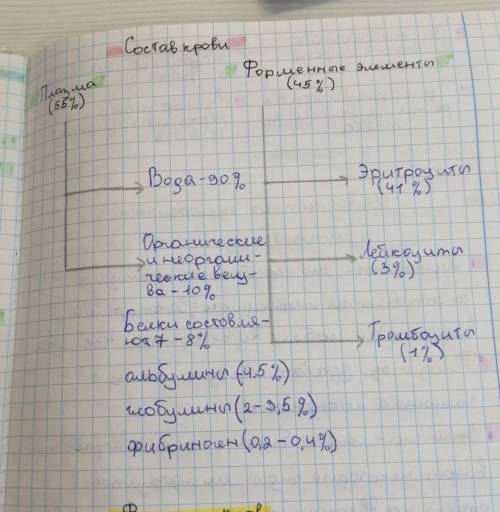 Состав крови
Плазма
(55%)
Форменные элементы
(45%)
Вода - 90%
Органические
и неоргани-
ческие вещ-
ва - 10%
Белки состовля-
ют 7 - 8%
альбумины (4.5%)
глобулины (2 - 3,5%)
фибриноген (0,2 - 0,4%)
Эритроциты
(41%)
Лейкоциты
(3%)
Тромбоциты
(1%)